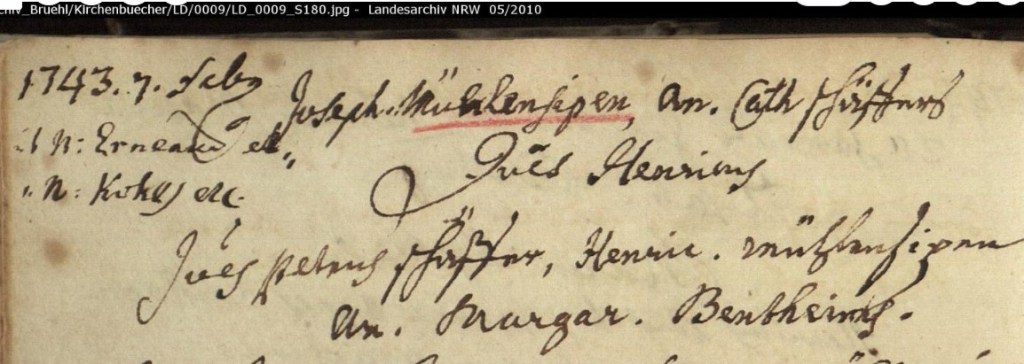 chiv_Bruehl/Kirchenbuecher/LD/0009/LD_0009_S180.jpg - Landesarchiv NRW 05/2010
1743. 7. Feb Joseph Mühlensipen, An. Cath Schäffers
N: Erneau et
Joes Henricus
N: Kohll etc.
Joes petrus Schäffer, Henric. Mühlensipen
An. Margar. Bentheims.